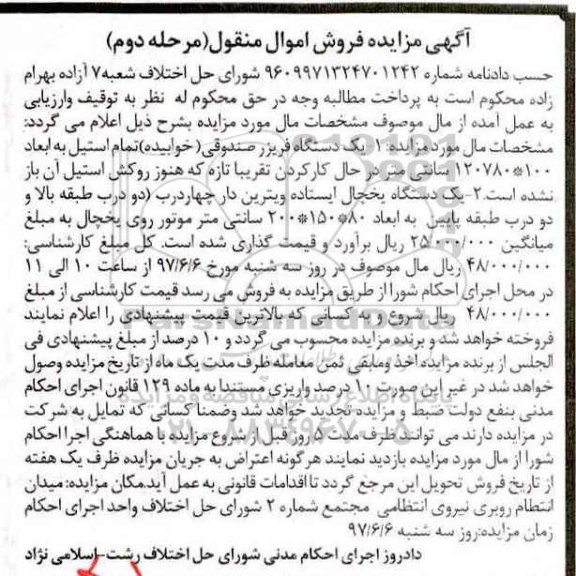 آگهی مزایده فروش اموال منقول(مرحله دوم)
حسب دادنامه شماره ۹۶۰۹۹۷۱۳۲۴۷۰۱۲۴۲ شورای حل اختلاف شعبه۷ آزاده بهرام
زاده محکوم است به پرداخت مطالبه وجه در حق محکوم له نظر به توقیف وارزیابی
به عمل آمده از مال موصوف مشخصات مال مورد مزایده بشرح ذیل اعلام می گردد:
مشخصات مال مورد مزایده: ۱- یک دستگاه فریزر صندوقی(خوابیده)تمام استیل به ابعاد
۱۰۰*۱۲۰*۷۸۰ سانتی متر در حال کارکردن تقریبا تازه که هنوز روکش استیل آن باز
نشده است.۲-یک دستگاه یخچال ایستاده ویترین دار چهاردرب (دو درب طبقه بالا و
دو درب طبقه پایین به ابعاد ۸۰*۱۵۰*۲۰۰ سانتی متر موتور روی یخچال به مبلغ
میانگین ۲۵/۰۰۰/۰۰۰ ریال برآورد و قیمت گذاری شده است. کل مبلغ کارشناسی:
۴۸/۰۰۰/۰۰۰ ریال مال موصوف در روز سه شنبه مورخ ۹۷/۶/۶ از ساعت ۱۰ الی ۱۱
در محل اجرای احکام شورا از طریق مزایده به فروش می رسد قیمت کارشناسی از مبلغ
۴۸/۰۰۰/۰۰۰ ریال شروع و به کسانی که بالاترین قیمت پیشنهادی را اعلام نمایند
فروخته خواهد شد و برنده مزایده محسوب می گردد و ۱۰ درصد از مبلغ پیشنهادی فی
الجلس از برنده مزایده اخذ ومابقی ثمن معامله ظرف مدت یک ماه از تاریخ مزایده وصول
خواهد شد در غیر این صورت ۱۰ درصد واریزی مستندا به ماده ۱۲۹ قانون اجرای احکام
مدنی بنفع دولت ضبط و مزایده تجدید خواهد شد وضمنا کسانی که تمایل به شرکت
در مزایده دارند می توانند ظرف مدت ۵ روز قبل از شروع مزایده با هماهنگی اجرا احکام
شورا از مال مورد مزایده بازدید نمایند هرگونه اعتراض به جریان مزایده ظرف یک هفته
از تاریخ فروش تحویل این مرجع گردد تا اقدامات قانونی به عمل آید.مکان مزایده: میدان
انتظام روبری نیروی انتظامی مجتمع شماره ۲ شورای حل اختلاف واحد اجرای احکام
زمان مزایده:روز سه شنبه ۹۷/۶/۶
دادروز اجرای احکام مدنی شورای حل اختلاف رشت-اسلامی نژاد
ParsNamadData
پایگاه اطلاع رسانی مناقصه و مزایده
۰۲۱-۸۸۳۴۹۶۷۰-۵